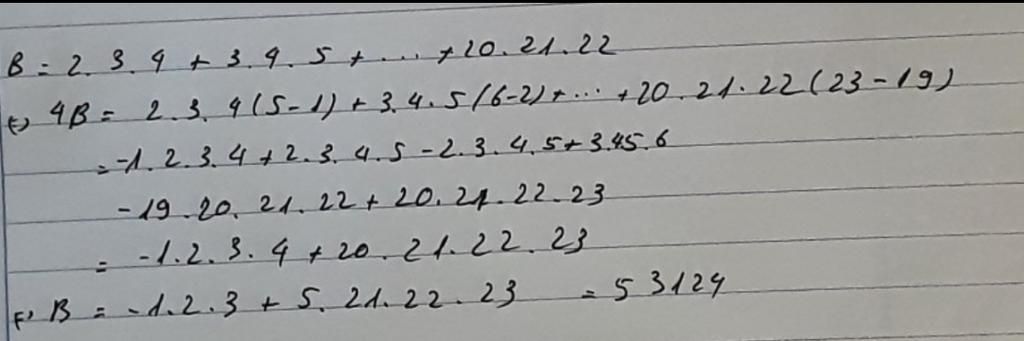 B = 2. 3. 4 + 3. 4. 5 + ... + 20. 21. 22
⇔ 4B = 2. 3. 4 (5-1) + 3. 4. 5 (6-2) + ... + 20. 21. 22 (23-19)
= -1. 2. 3. 4 + 2. 3. 4. 5 - 2. 3. 4. 5 + 3.45.6
-19. 20. 21. 22 + 20. 21. 22. 23
= -1. 2. 3. 4 + 20. 21. 22. 23
⇔ B = -1. 2. 3 + 5. 21. 22. 23 = 53124